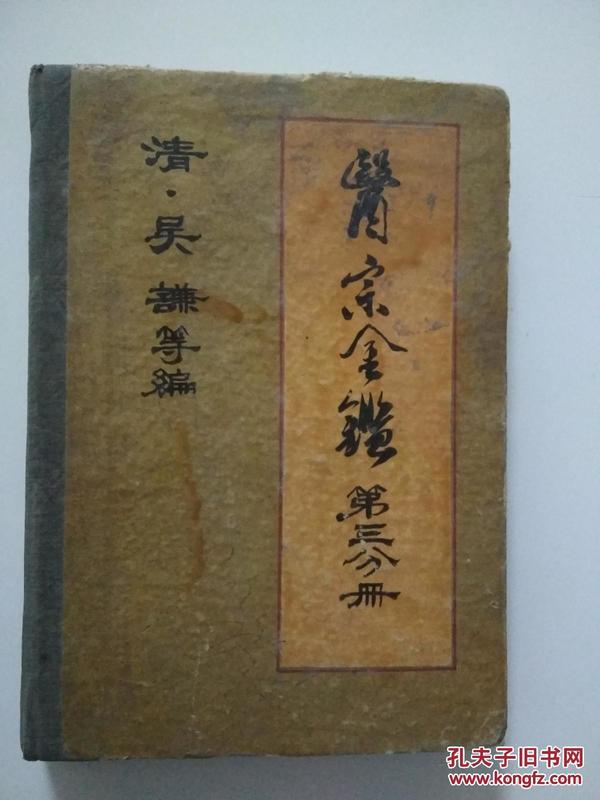 醫宗金鑑 第三分冊
清·吴謙等編
孔夫子旧书网
www.kongfz.com